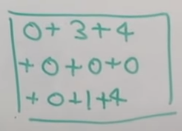 0+3+4
+0+0+0
+0+1+4